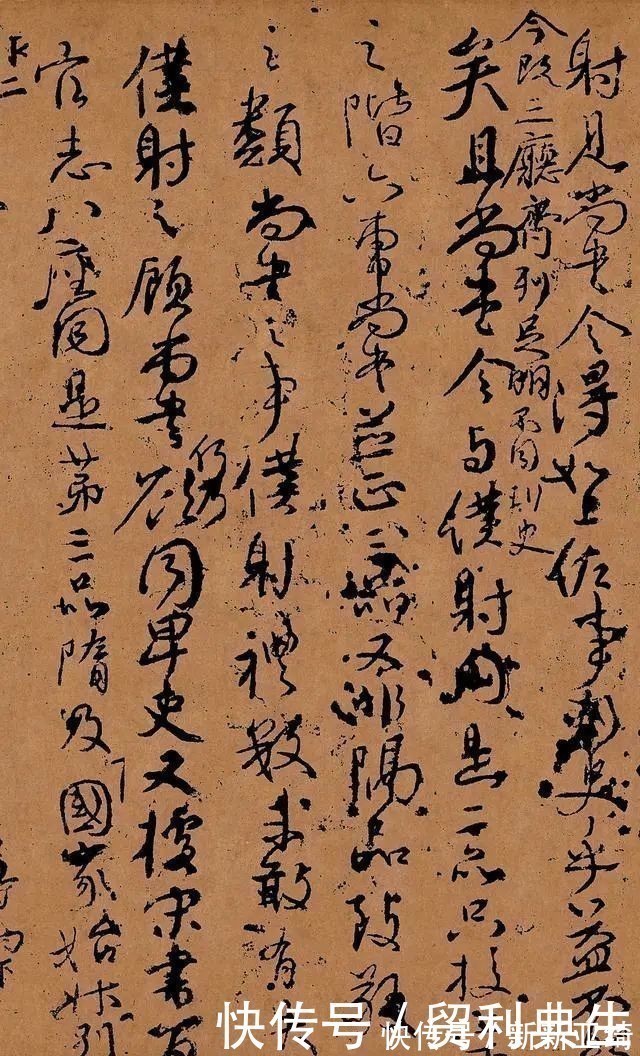 射見尚書令得如上佐事刺史乎益不
今既三廳齊列足明不同刺史
矣且尚書令與僕射同是二品只校
之階六曹尚書並正三品又非隔品致敬
之類尚書之事僕射禮數未敢有失
僕射之顧尚書同卑吏又據宋書百
官志八座同是第三品隋及國家始升別
快传号 / 留利典生
快传号